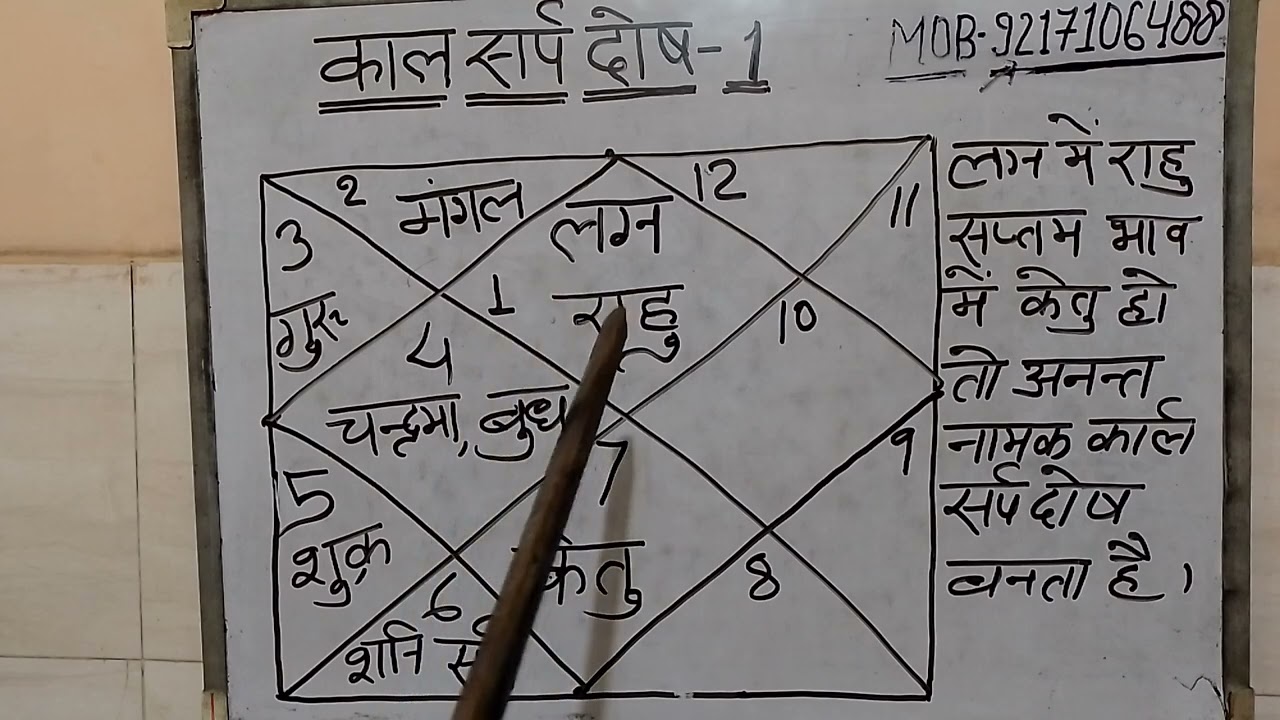 काल सर्प दोष-1
MOB-9217106488
2 मंगल
लग्न
12
11
3
गुरु
1
राहु
10
4
चन्द्रमा, बुध
9
5
शुक्र
7
केतु
6
शनि
8
लग्न में राहु
सप्तम भाव
में केतु हो
तो अनन्त
नामक कार्ल
सर्प दोष
बनता है।